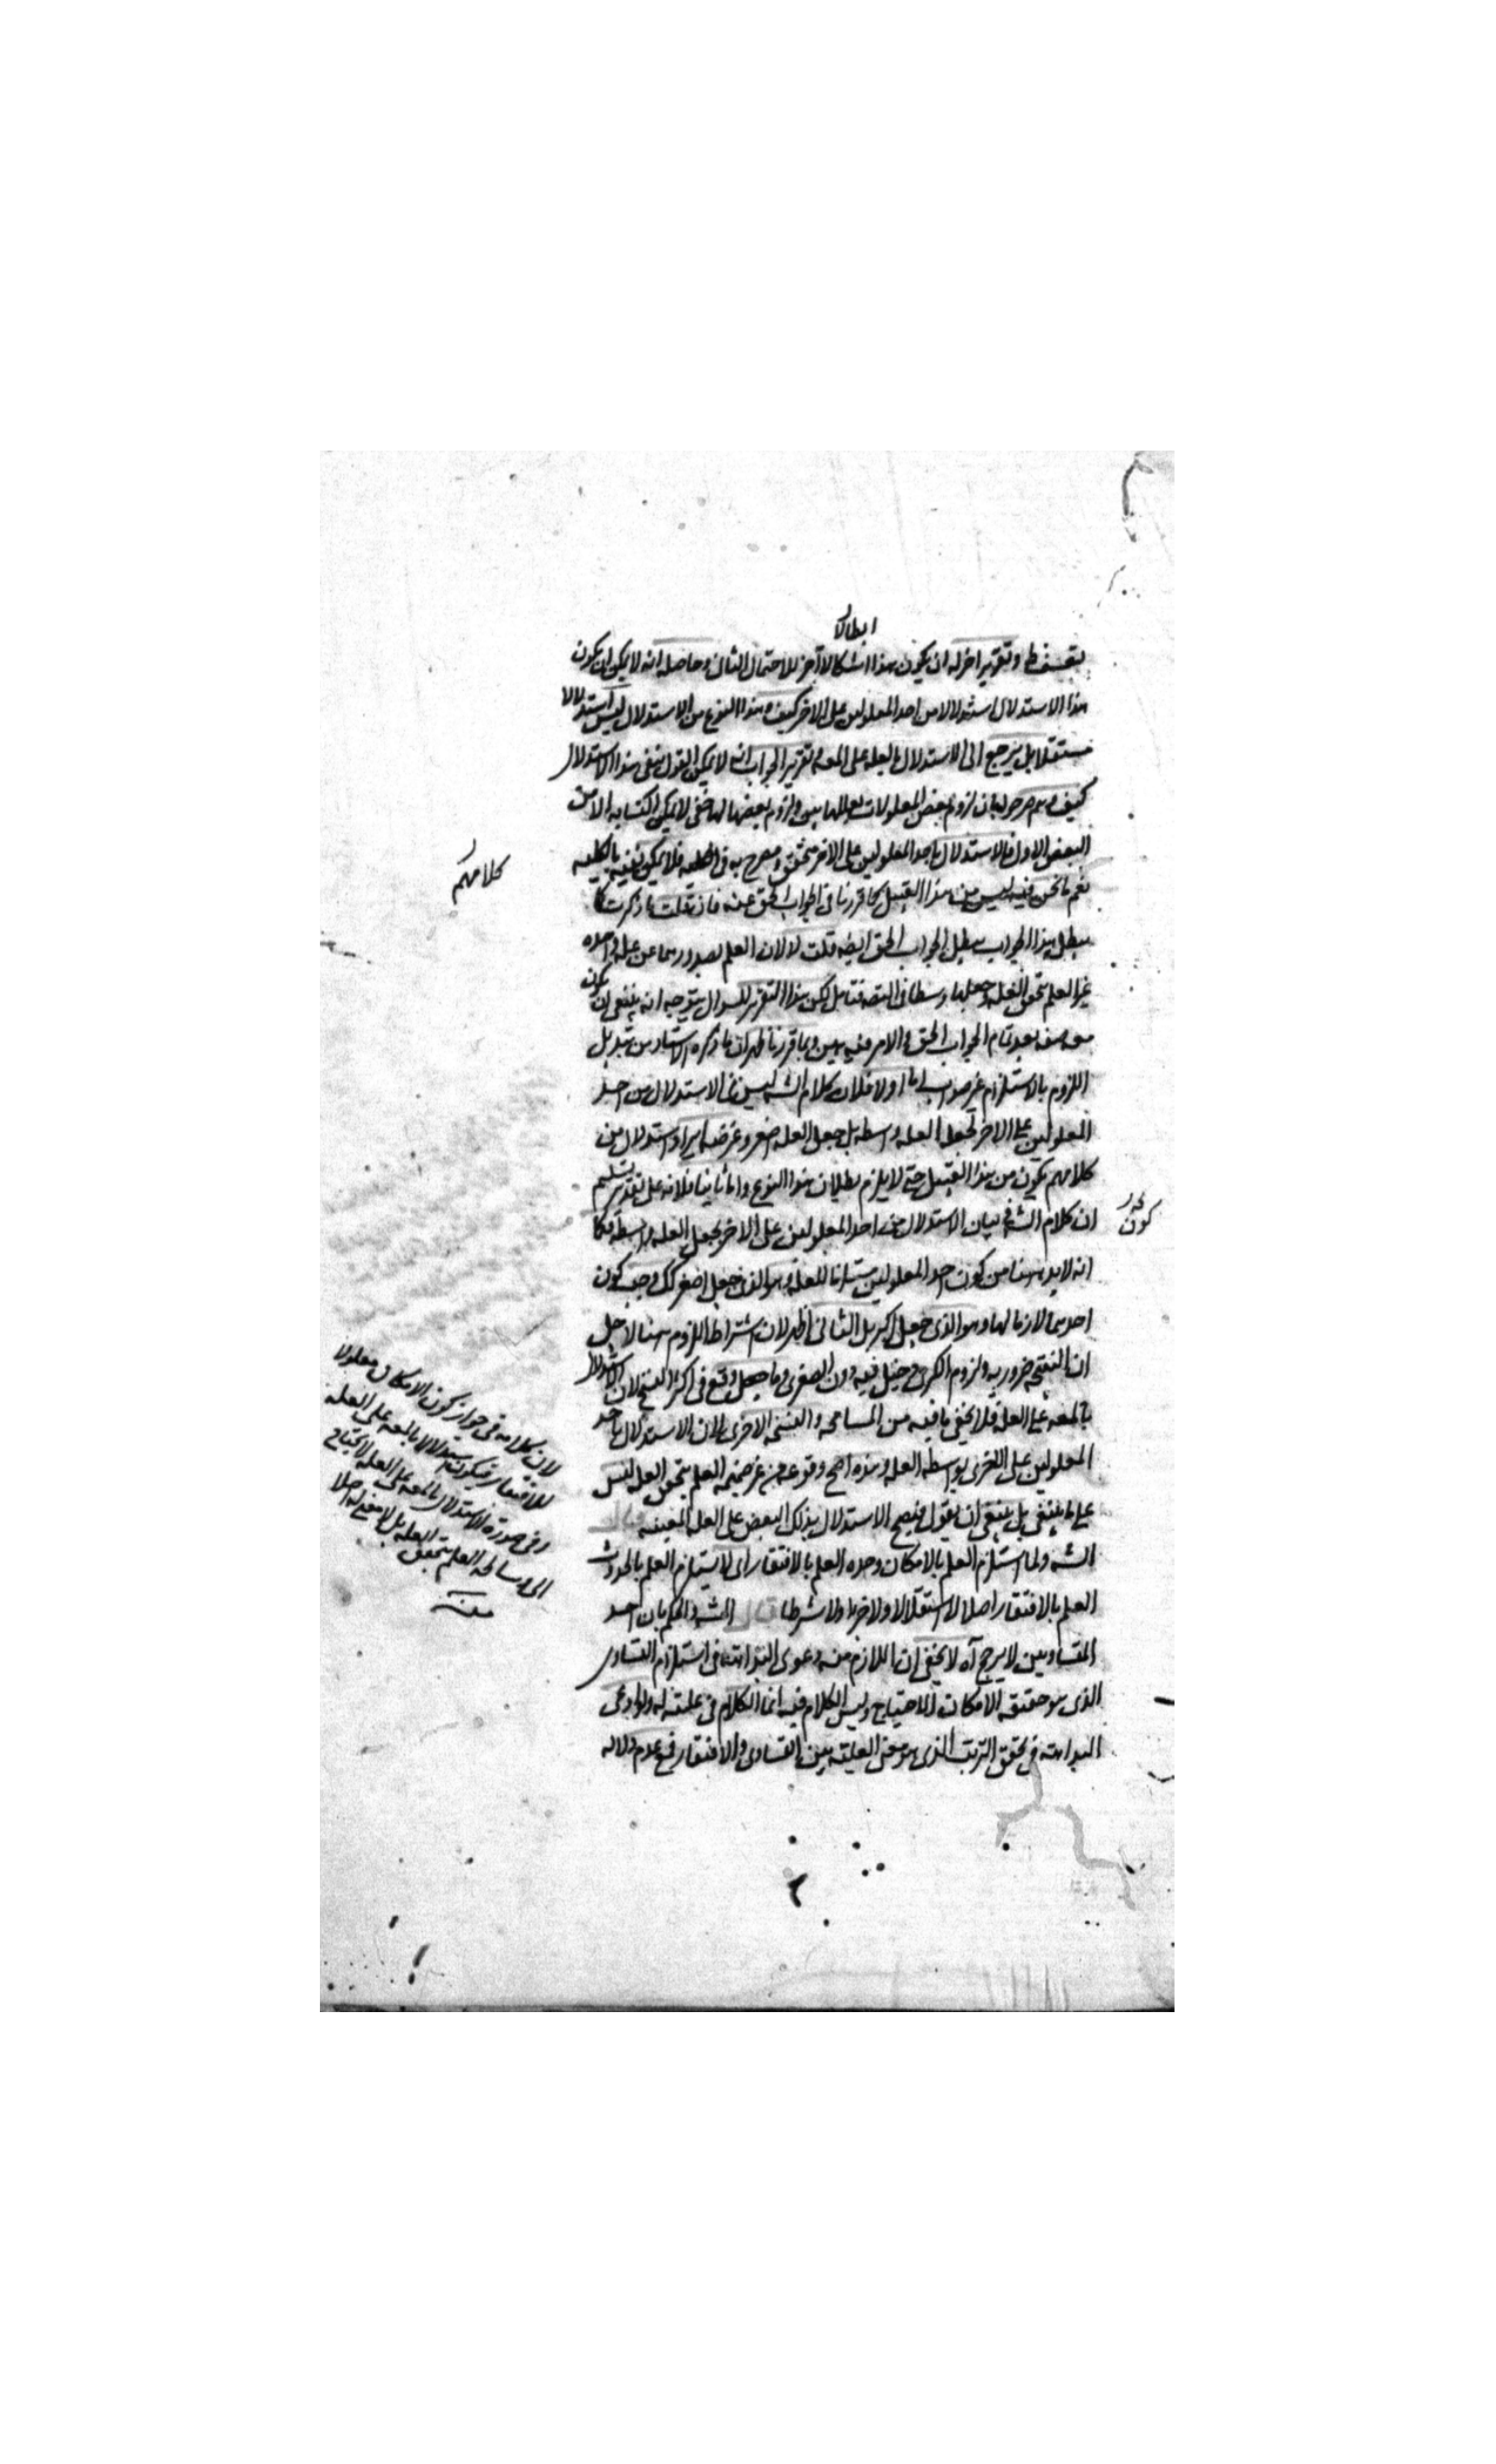 ابطالا
وتقرير اخر له ان يكون هذا اشكالا آخر للاحتمال الثانى وحاصله انه لا يمكن ان يكون
هذا الاستدلال استدلالا من احد المعلولين على الاخر كيف وهذا النوع من الاستدلال ليس استدلالا
مستقلا بل يرجع الى الاستدلال بالعله على المعه وتقرير الجواب انه لا يمكن القول بنفى هذا الاستدلال
كيف وهم صرحوا بان لزوم بعض المعلولات لعللها بين ولزوم بعضها لها خفى لا يمكن اكتسابه الا من
البعض الاول فالاستدلال باحد المعلولين على الاخر متحقق ومصرح به فى فلا يمكن نفيه بالكليه
كلامهم
نعم ما نحن فيه ليس من هذا القبيل كما قررنا فى الجواب الحق عنه فان قلت ما ذكرت كما
يبطل هذا الجواب يبطل الجواب الحق ايضه قلت لا لان العلم بصدورهما عن عله واحده
غير العلم بتحقق العله وجعلها وسطا فى التصـ فتامل لكن هذا التقرير للسوال يتوجه انه ينبغى ان يكون
بعد تمام الجواب الحق والامر فيه هين وبما قررنا ظهر ان ما ذكره الاستاد من تبديل
اللزوم بالاستلزام غير صواب اما اولا فلان كلام الشه ليس فى الاستدلال من احد
المعلولين على الاخر بجعل العله واسطه بل جعل العله اصغر وغرضه ايراد استدلال من
كلامهم يكون من هذا القبيل حتى لا يلزم بطلان هذا النوع واما ثانيا فلانه على تقدير تسليم
ان كلام الشه فى بيان الاستدلال من احد المعلولين على الاخر بجعل العله واسطه فكما
كون
انه لابد هنا من كون احد المعلولين مستلزما للعله وهو الذى جعل اصغر كك وجب كون
احدهما لازما لها وهو الذى جعل اكبر بل الثانى اظهر لان اشتراط اللزوم هنا لاجل
ان النتيجه ضروريه ولزوم الكبرى دخيل فيه دون الصغرى وما وقع فى اكثر النسخ لان الاستدلال
بالمعه على العله فلا يخفى ما فيه من المسامحه والنسخه الاخرى لان الاستدلال باحد
المعلولين على الاخرى بواسطه العله وهذه اصح وقوعه من غير ضميمه العلم بتحقق العله ليس
على ما ينبغى بل ينبغى ان يقول فيصح الاستدلال بذلك البعض على العله المعينه قال
الشه ولما استلزم العلم بالامكان وحده العلم بالافتقار اى لا يستلزم العلم بالحدوث
العلم بالافتقار اصلا لا استقلالا ولا جزءا ولا شرطا قال الشه والحكم بان احد
المتساويين لا يرجح آه لا يخفى ان اللازم منه دعوى البداهته فى استلزام التساوى
الذى هو حقيقه الامكان الاحتياج وليس الكلام فيه انما الكلام فى عليته له ولو ادعى
البداهته فى تحقق الترتب الذى هو معنى العليته بين التساوى والافتقار فمع عدم دلاله
لان كلامه فى جواز كون الامكان معلولا
للافتقار فيكون استدلالا بالمعه على العله
وفى صورة الاستدلال بالمعه على العله لا يحتاج
الى العلم بتحقق العله بل لا معنى له اصلا
منه